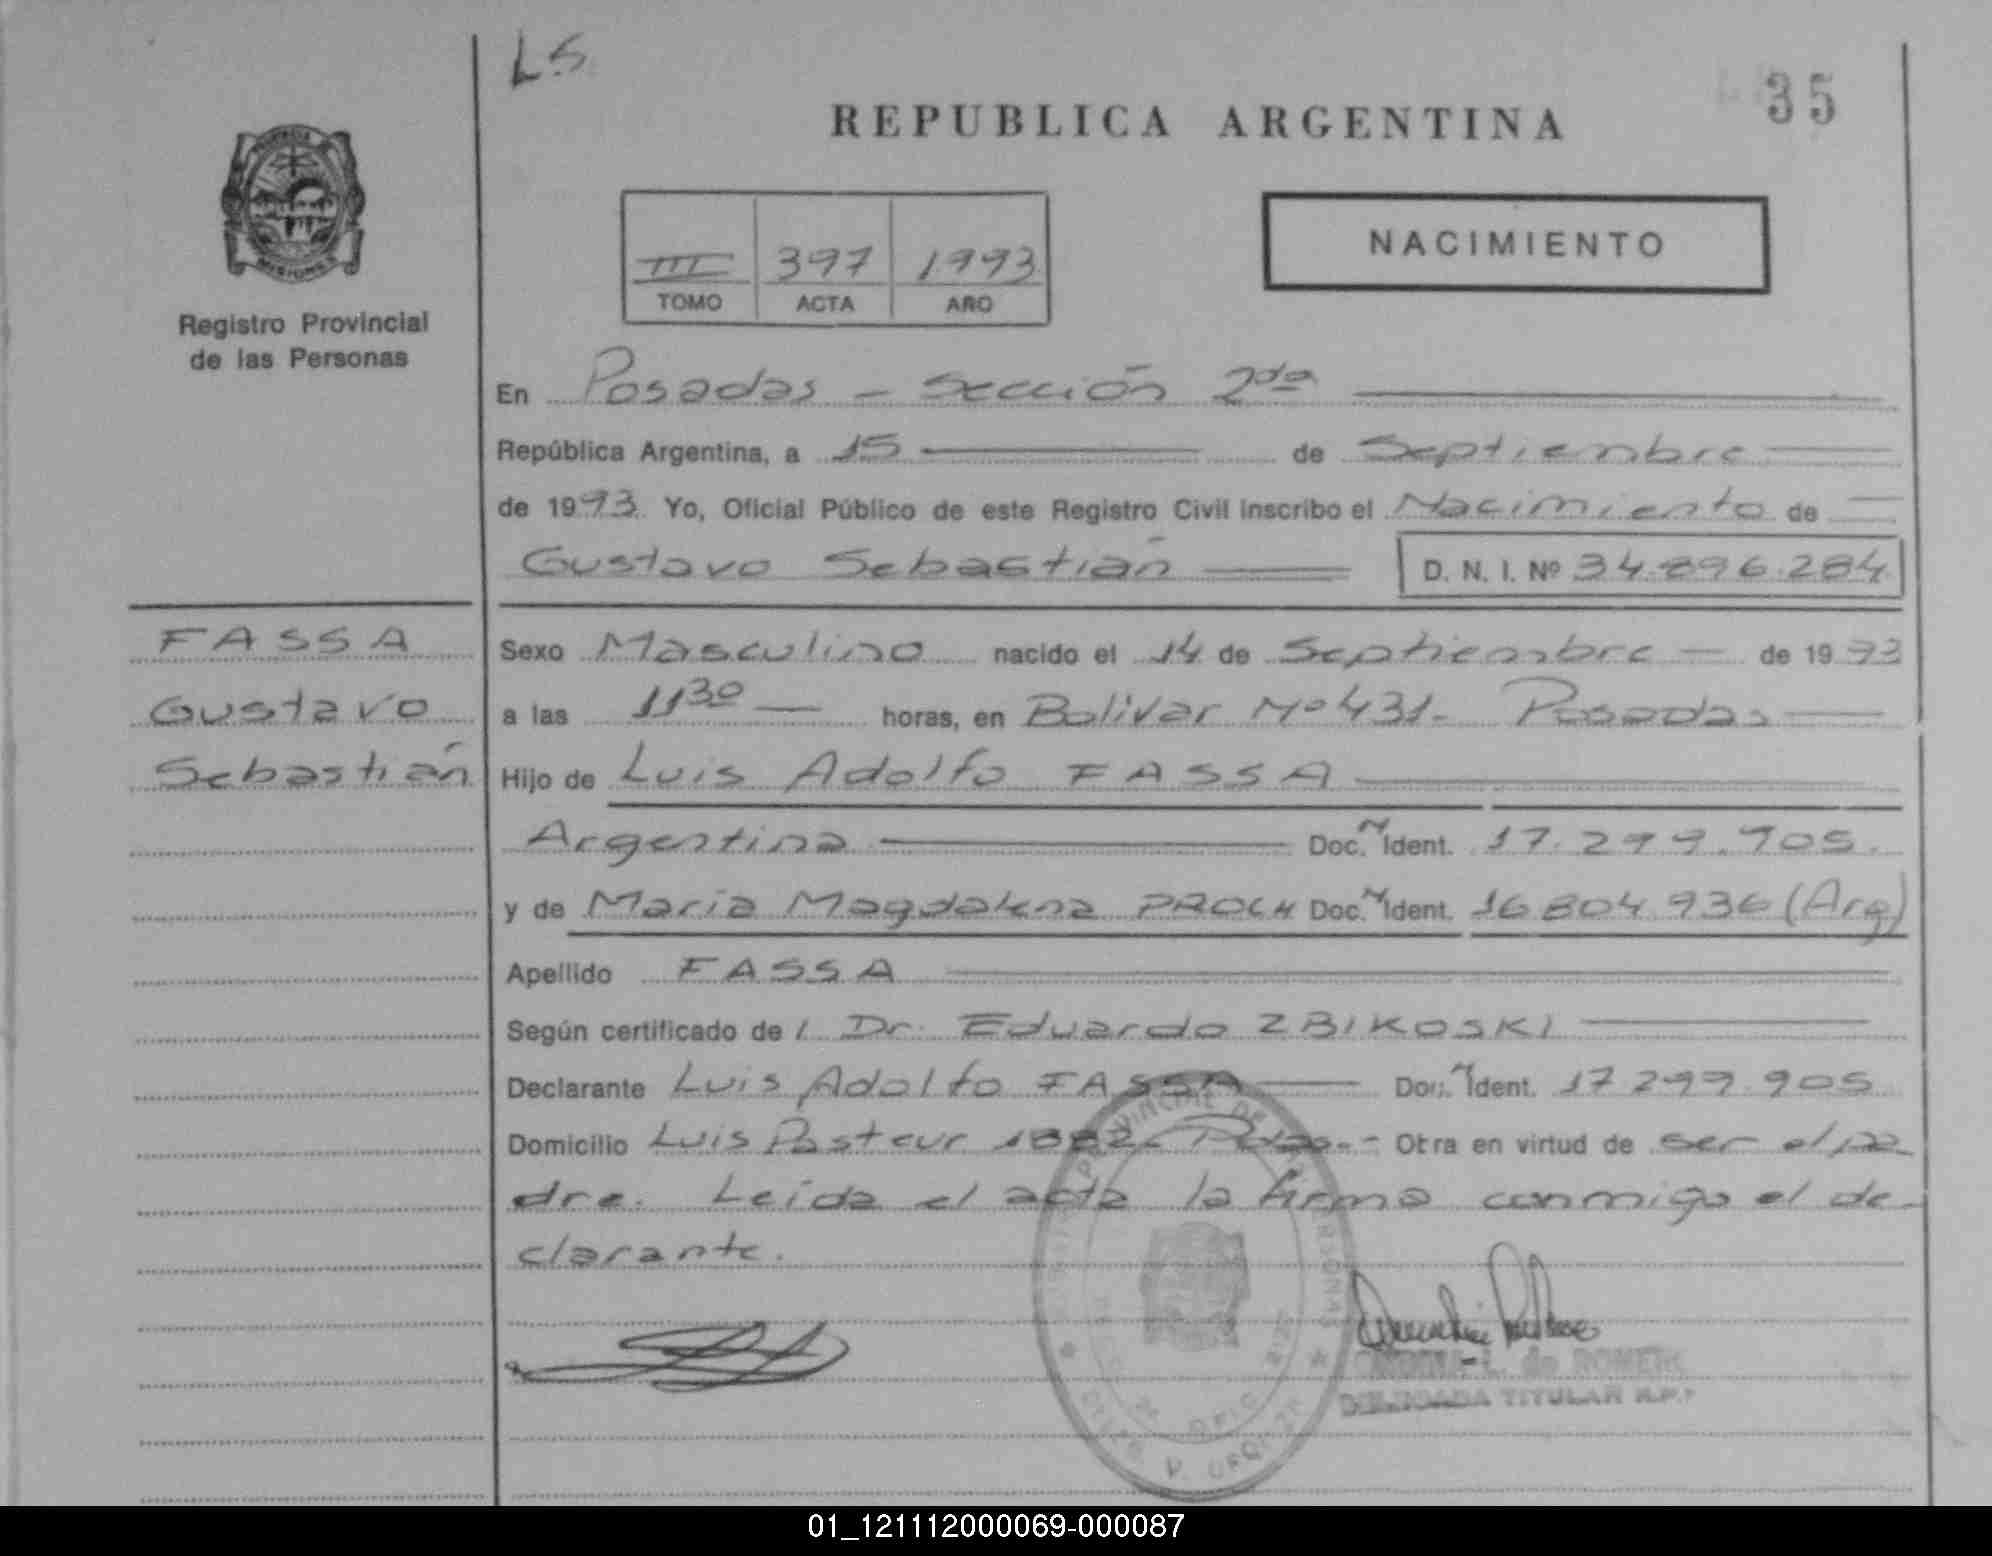 LS.
35
REPUBLICA ARGENTINA
NACIMIENTO
III 397 1993
TOMO ACTA AÑO
MISIONES
Registro Provincial
de las Personas
En Posadas - Sección 2da
República Argentina, a 15 de Septiembre
de 1993. Yo, Oficial Público de este Registro Civil inscribo el Nacimiento de
Gustavo Sebastián D. N. I. Nº 34.896.284
FASSA
Gustavo
Sebastián
Sexo Masculino nacido el 14 de Septiembre de 1993
a las 11 30 horas, en Bolivar Nº 431. Posadas
Hijo de Luis Adolfo FASSA
Argentina Doc. N Ident. 17.299.905.
y de María Magdalena PROCH Doc. N Ident. 16.804.936 (Arg)
Apellido FASSA
Según certificado de l Dr. Eduardo ZBIKOSKI
Declarante Luis Adolfo FASSA Doc. N Ident. 17.299.905
Domicilio Luis Pasteur 1882 - Pdas. - Otra en virtud de ser el pa-
dre. Leída el acta la firma conmigo el de-
clarante.
L. de ROMERO
DELEGADA TITULAR R.P.P
PROVINCIAL DE LAS PERSONAS
V. URQUIZA
01_121112000069-000087